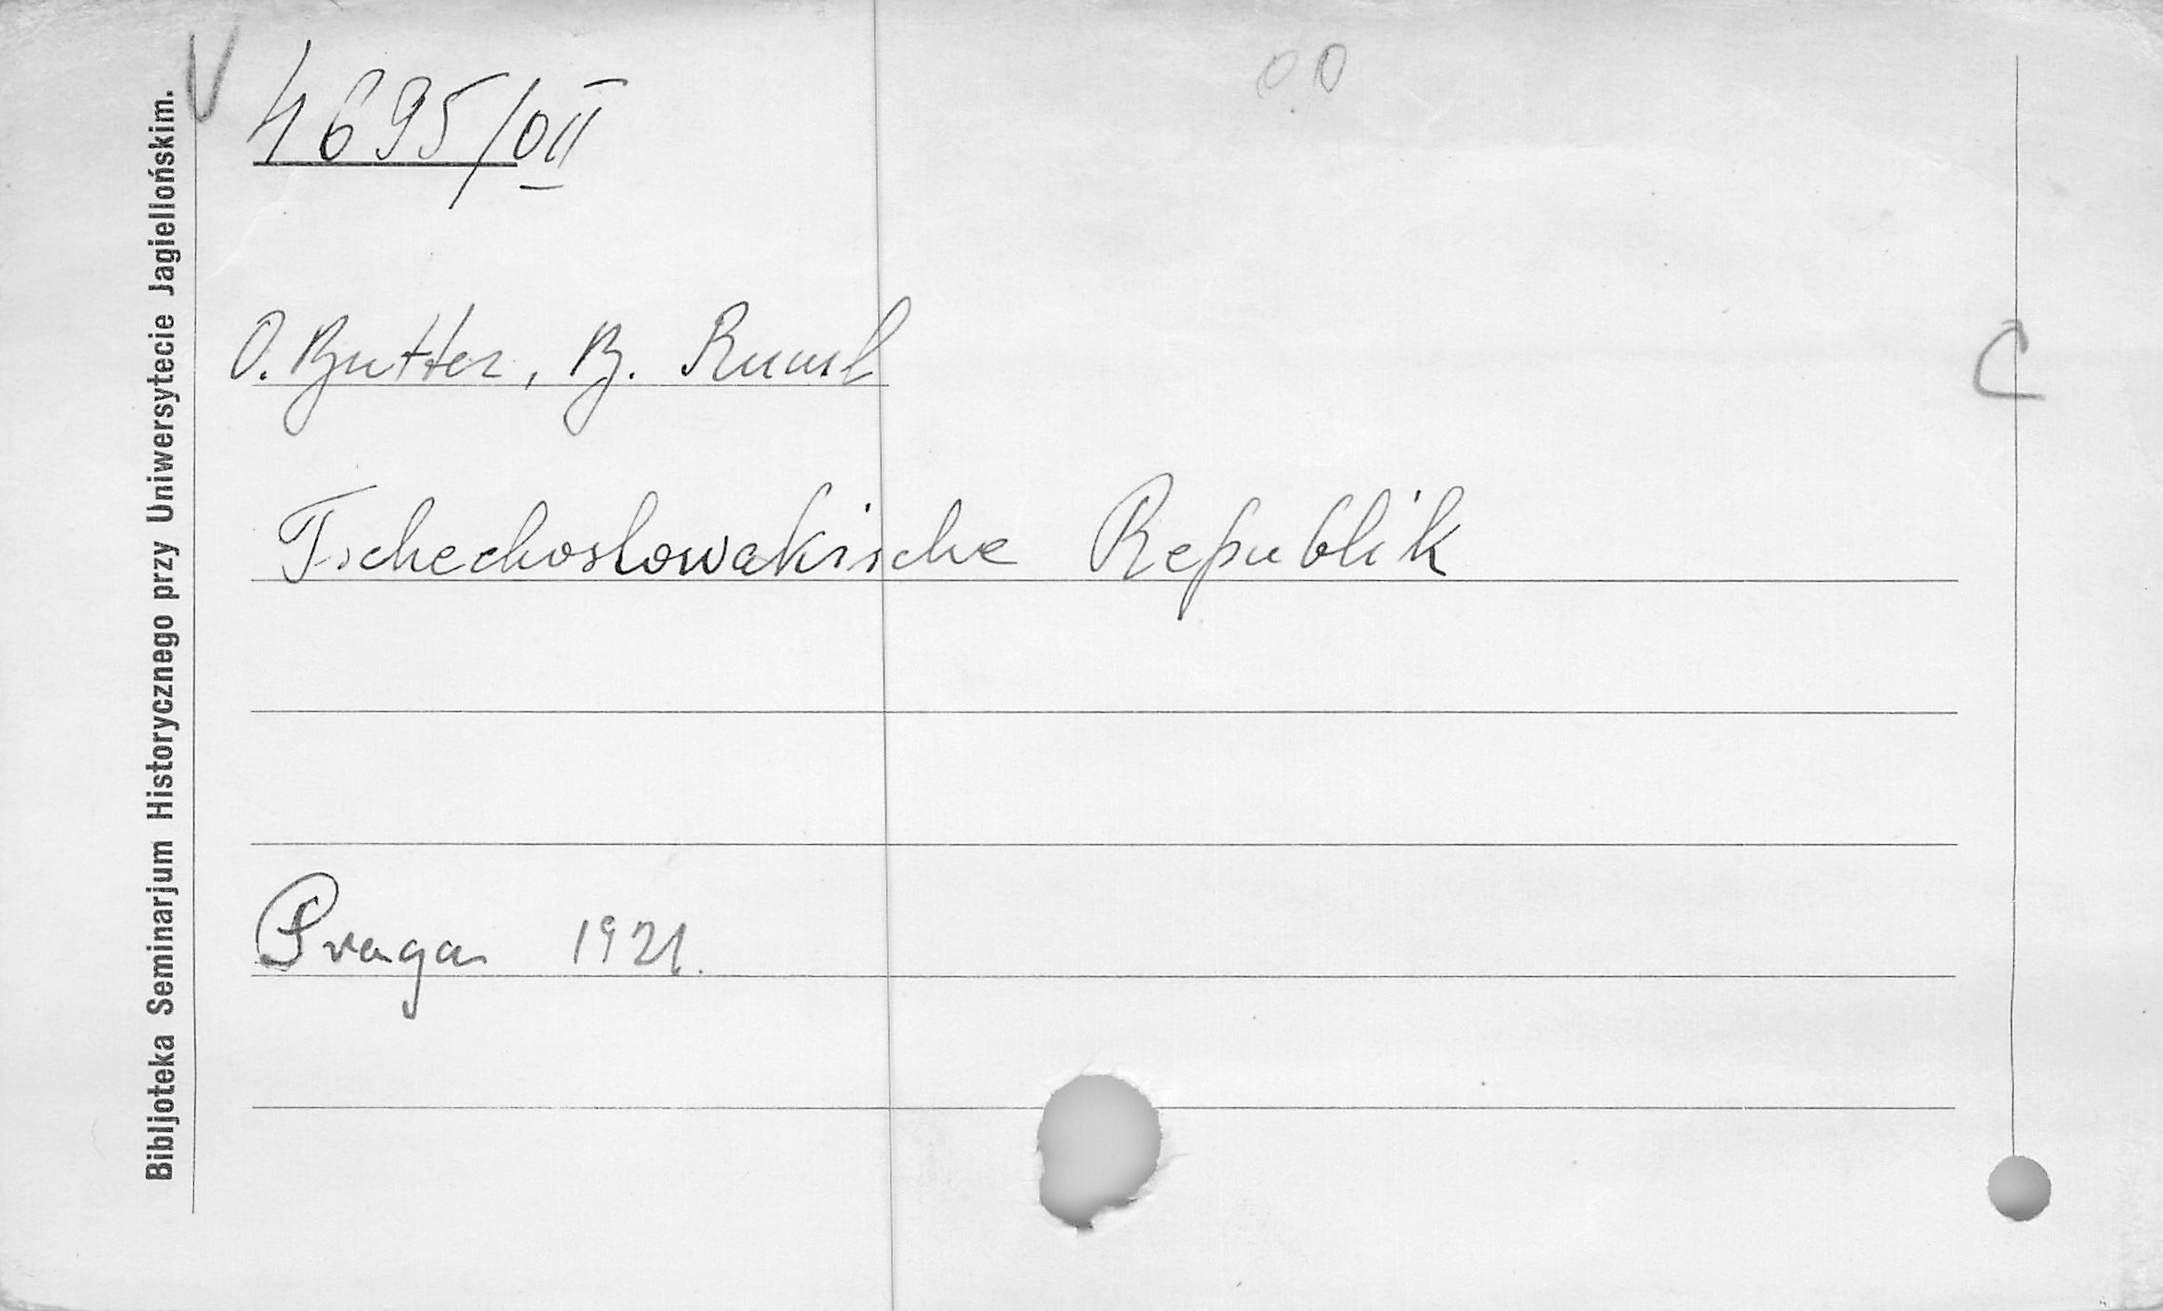 V
4695/OII
O O
O. Butter, B. Ruml
C
Tschechoslowakische Republik
Praga 1921.
Bibljoteka Seminarjum Historycznego przy Uniwersytecie Jagiellońskim.